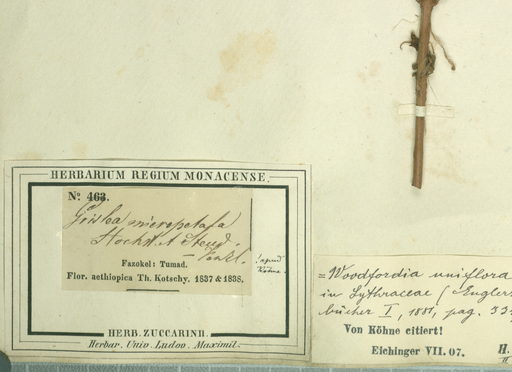 HERBARIUM REGIUM MONACENSE.
No. 463.
Grislea micropetala
Hochst. et Steud.
Fazokel: Tumad.
Flor. aethiopica Th. Kotschy. 1837 & 1838.
! apud
Köhne.
HERB. ZUCCARINII.
Herbar. Univ. Ludov. Maximil.
= Woodfordia uniflora
in Lythraceae (Englers
bücher I, 1881, pag. 33
Von Köhne citiert!
Eichinger VII. 07.
H.